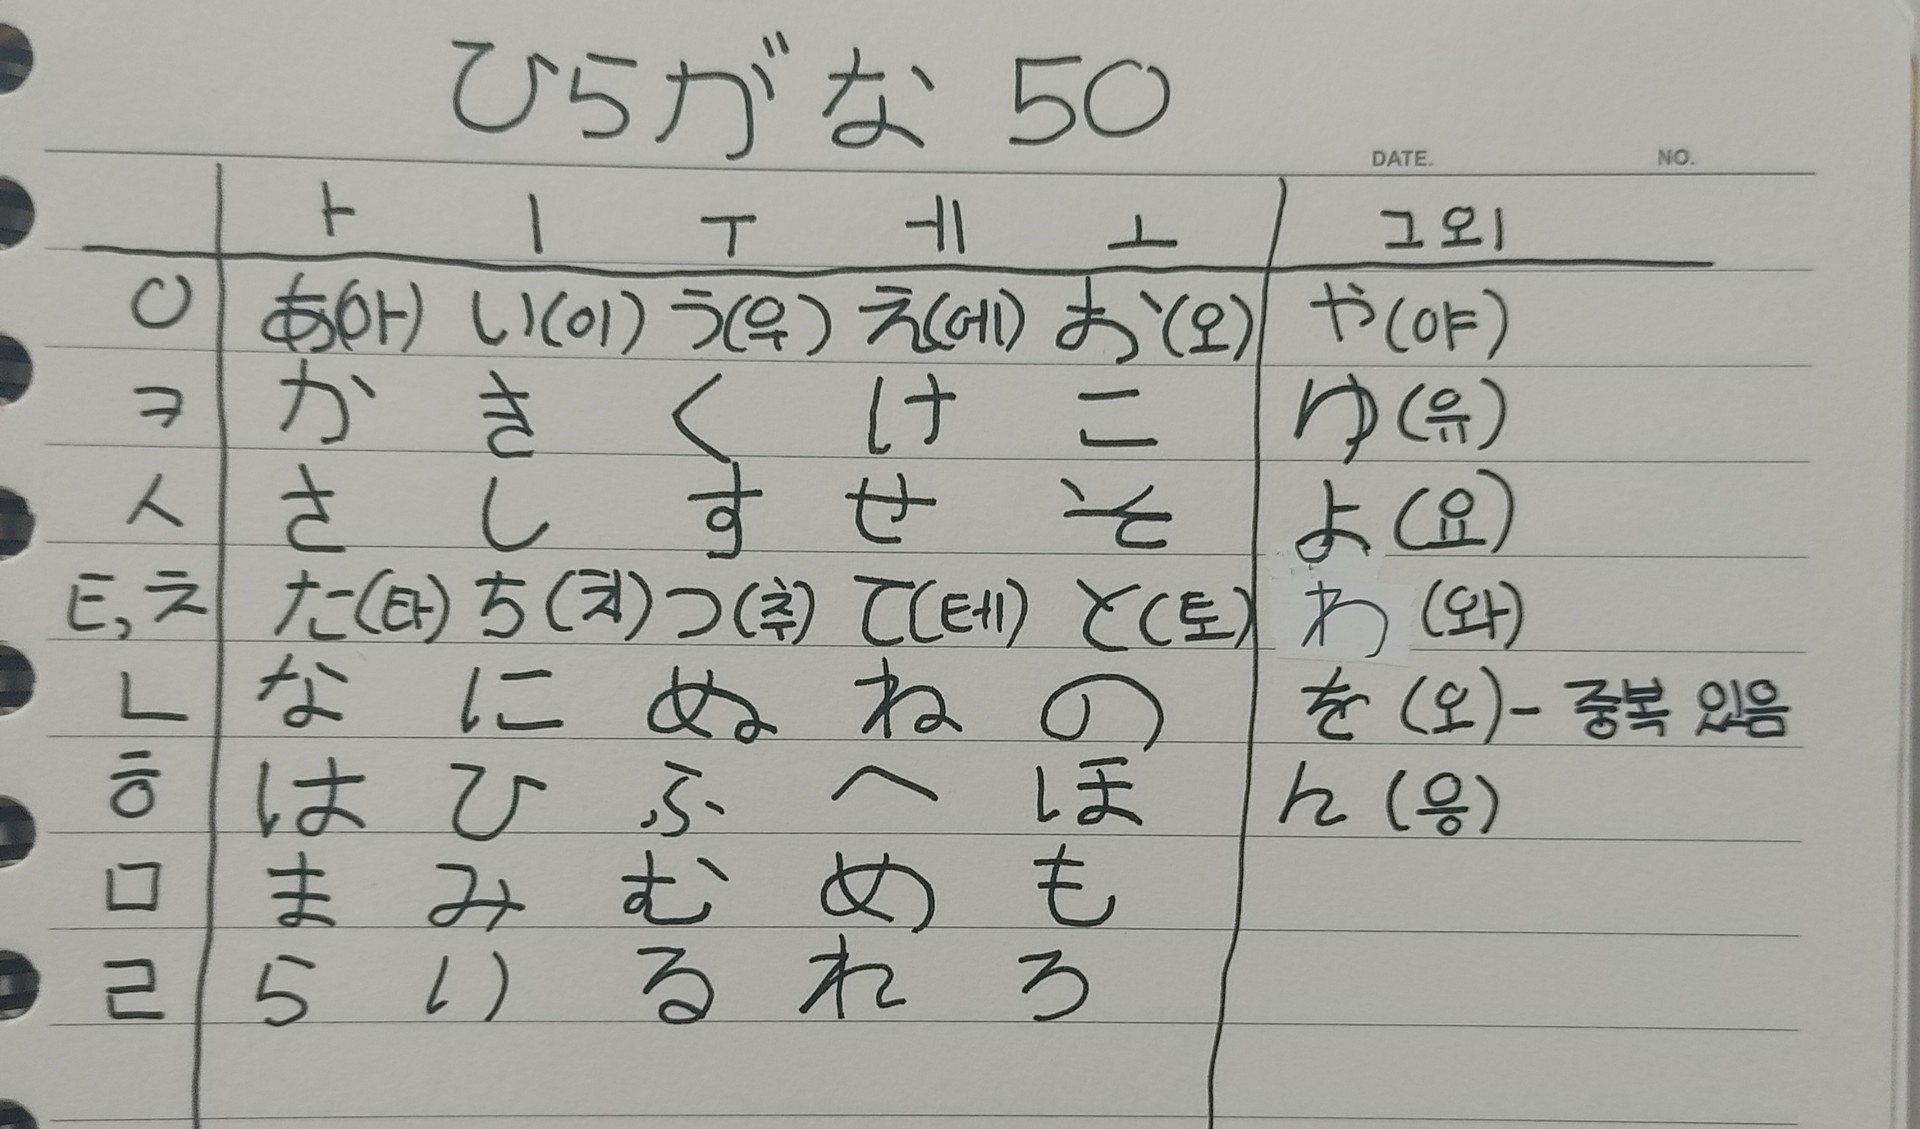 ひらがな 50
DATE. NO.
ㅏ ㅣ ㅜ ㅔ ㅗ 그 외
ㅇ あ(아) い(이) う(우) え(에) お(오) や(야)
ㅋ か き く け こ ゆ(유)
ㅅ さ し す せ そ よ(요)
ㅌ,ㅊ た(타) ち(치) つ(추) て(테) と(토) わ(와)
ㄴ な に ぬ ね の を(오)- 중복 있음
ㅎ は ひ ふ へ ほ ん(응)
ㅁ ま み む め も
ㄹ ら り る れ ろ